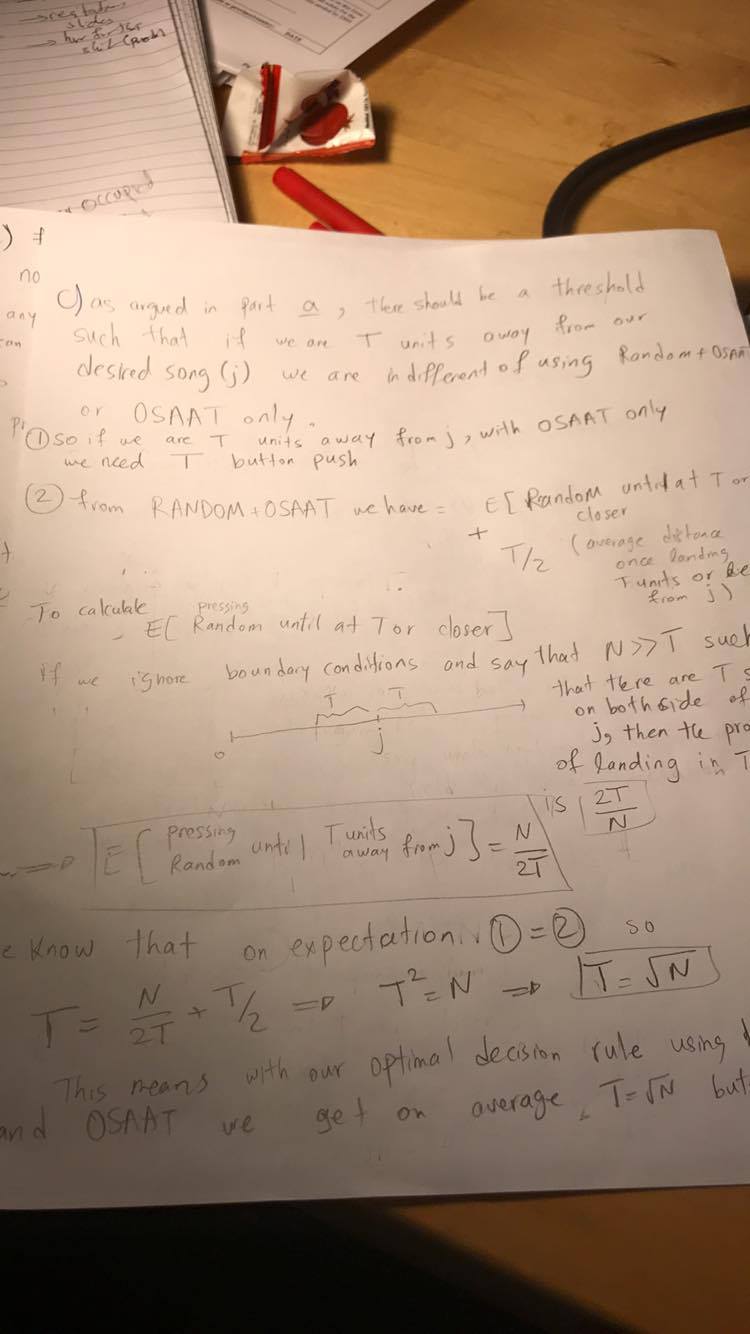 slides
occupied
DATE
) if
no
any
can
c) as argued in part a, there should be a threshold
such that if we are T units away from our
desired song (j) we are indifferent of using Random + OSAAT
or OSAAT only.
① so if we are T units away from j, with OSAAT only
we need T button push
② from RANDOM + OSAAT we have = E[Random until at T or
closer
+ T/2 (average distance
once landing
T units or
from j)
To calculate
E[pressing Random until at T or closer]
if we ignore boundary conditions and say that N >> T such
that there are T
on both side of
j, then the
of landing in T
T T
0 j
is 2T/N
=> E[pressing Random until T units away from j] = N/2T
know that on expectation.. ① = ② so
T = N/2T + T/2 => T² = N => T = √N
This means with our optimal decision rule using
and OSAAT we get on average T = √N but